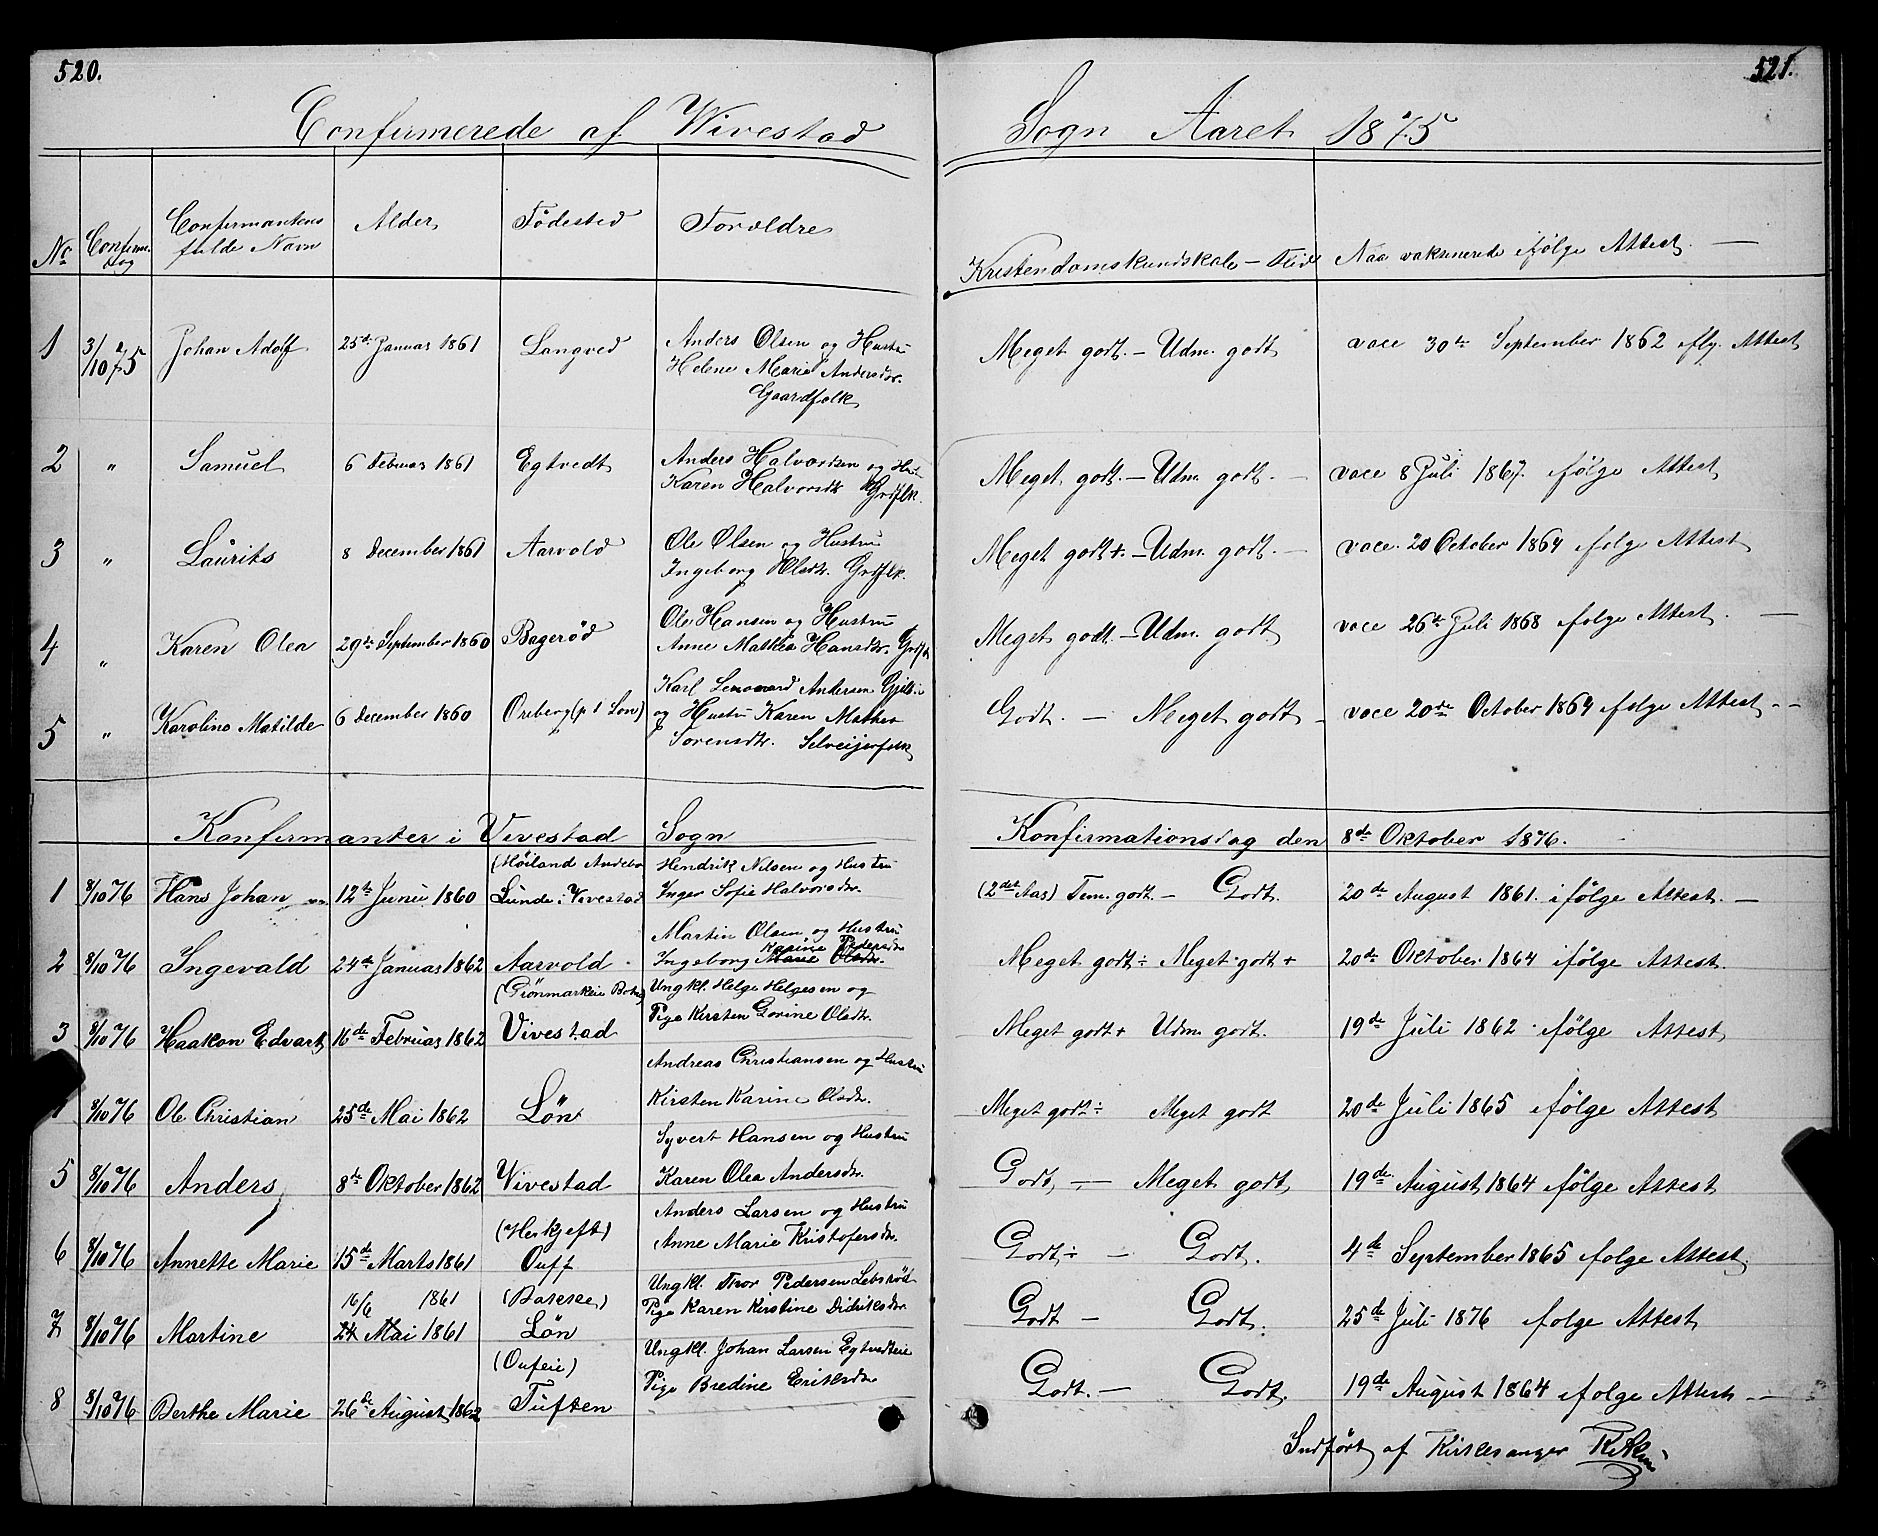 520.
521.
Confirmerede af Wivestad Sogn Aaret 1875
No Confirm. dag Confirmantens fulde Navn Alder Födested Forældre Kristendomskundskab – Flid Naar vaksinerede ifölge Attest. —
1 3/10 75 Johan Adolf 25de Januar 1861 Langved Anders Olsen og Hustru Meget godt. – Udm. godt vacc 30te September 1862 iflg. Attest
Helene Marie Andersdr.
Gaardfolk
2 " Samuel 6 Februar 1861 Egtvedt Anders Halvorsen og Hust. Meget godt. – Udm. godt. – vacc 8 Juli 1867. ifölge Attest
Karen Halvorsdr. Grdflk.
3 " Laurits 8 December 1861 Aarvold Ole Olsen og Hustru Meget godt+. – Udm. godt. – vacc. 20 October 1864 ifolge Attest
Ingeborg Olsdr. Grdflk.
4 " Karen Olea 29de September 1860 Bagerød Ole Hansen og Hustru Meget godt. – Udm. godt vacc 26de Juli 1868 ifolge Attest. —
Anne Mathea Hansdr. Grdflk
5 " Karoline Matilde 6 December 1860 Oreberg (p t Lön) Karl Lennard Andersen Godt. – Meget godt – vacc 20de October 1864 ifolge Attest. –
og Hustru Karen Mathea
Sorensdtr. Selveijerfolk
Konfirmanter i Vivestad Sogn Konfirmationsdag den 8de Oktober 1876.
1 8/10 76 Hans Johan 12te Juni 1860 (Höiland Andebu) Hendrik Nilsen og Hustru (2det Aar) Tem. godt. – Godt. 20de August 1861. ifölge Attest. —
Lunde i Vivestad Inger Sofie Halvorsdr.
2 8/10 76 Ingevald 24de Januar 1862 Aarvold. Martin Olsen og Hustru Meget godt ÷ Meget godt + 20de Oktober 1864 ifölge Attest.
Karine Pedersdr
Ingeborg Marie Olsdr.
3 8/10 76 Haakon Edvart 16de Februar 1862 (Grönmarkeie Botne) Ungkl. Helge Helgesen og Meget godt + Udm. godt. 19de Juli 1862. ifölge Attest
Vivestad Pige Kirsten Gorine Olsdr.
8/10 76 Ole Christian 25de Mai 1862 Lön Andreas Christiansen og Hustru Meget godt ÷ Meget godt 20de Juli 1865 ifölge Attest
Kirsten Karine Olsdr.
5 8/10 76 Anders 8de Oktober 1862 Vivestad Syvert Hansen og Hustru Godt, — Meget godt, 19de August 1864 ifölge Attest
Karen Olea Andersdr.
6 8/10 76 Annette Marie 15de Marts 1861 (Herkjeft) Anders Larsen og Hustru Godt ÷ — Godt. 4de September 1865 ifolge Attest.
Ouff Anne Marie Kristofersdr.
16/6 1861
7 8/10 76 Martine 24 Mai 1861 (Bakske) Ungkl. Thor Pedersen Lebsröd Godt — Godt. 25de Juli 1876 ifolge Attest
Lön Pige Karen Kirstine Didriksdr.
8 8/10 76 Berthe Marie 26de August 1862 (Oufeie) Ungkl. Johan Larsen Egtvedteie Godt. — Godt. 19de August 1864 ifolge Attest —
Tuften Pige Bredine Eriksdr
Indfört af Kirkesanger